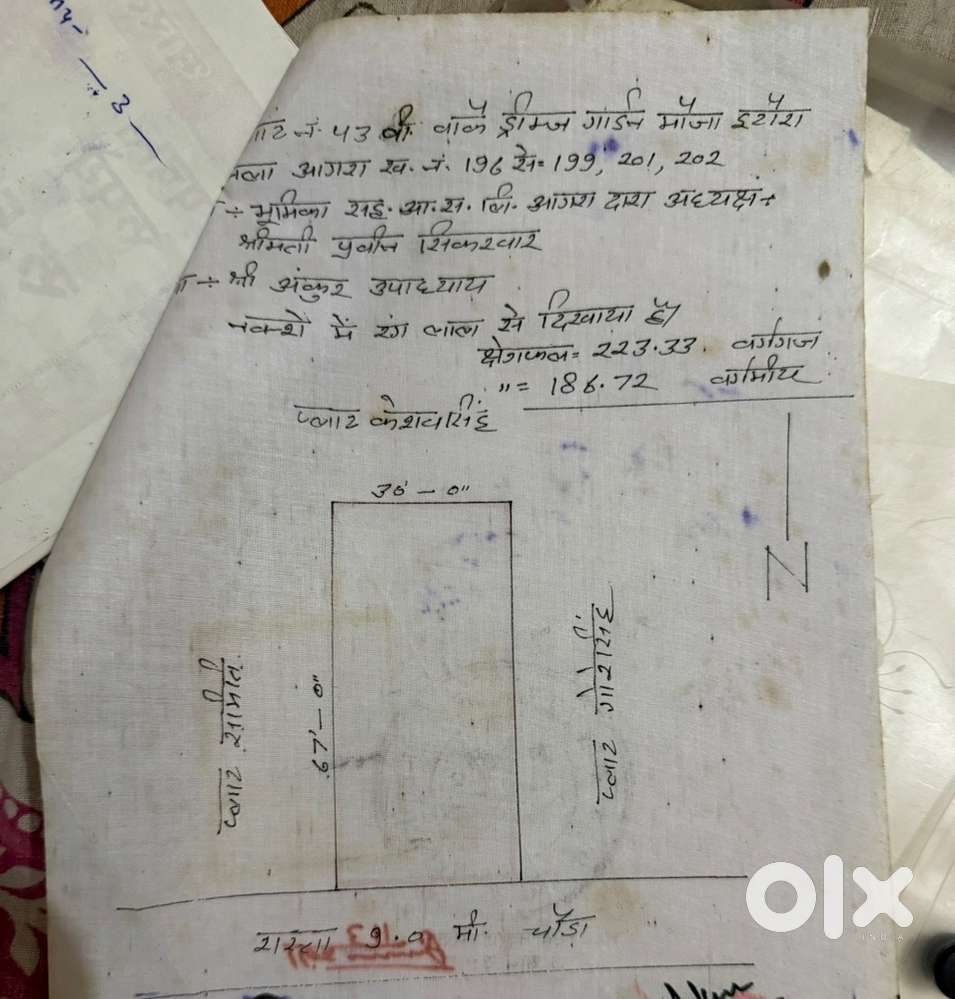 लाट नं. 43 बी. वाकै ड्रीम्ज गार्डन मौजा इटौरा
जिला आगरा ख. नं. 196 से= 199, 201, 202
÷ भूमिका सह. आ. स. लि. आगरा द्वारा अध्यक्ष÷
श्रीमती प्रवीन सिकरवार
÷ श्री अंकुर उपाध्याय
नक्शे में रंग लाल से दिखाया है।
क्षेत्रफल= 223.33. वर्गगज
"= 186.72 वर्गमीटर
प्लाट केशवसिंह
30' - 0"
N
67' - 0"
प्लाट समिति
प्लाट
रास्ता 9.0 मी. चौड़ा
olx
INDIA
3